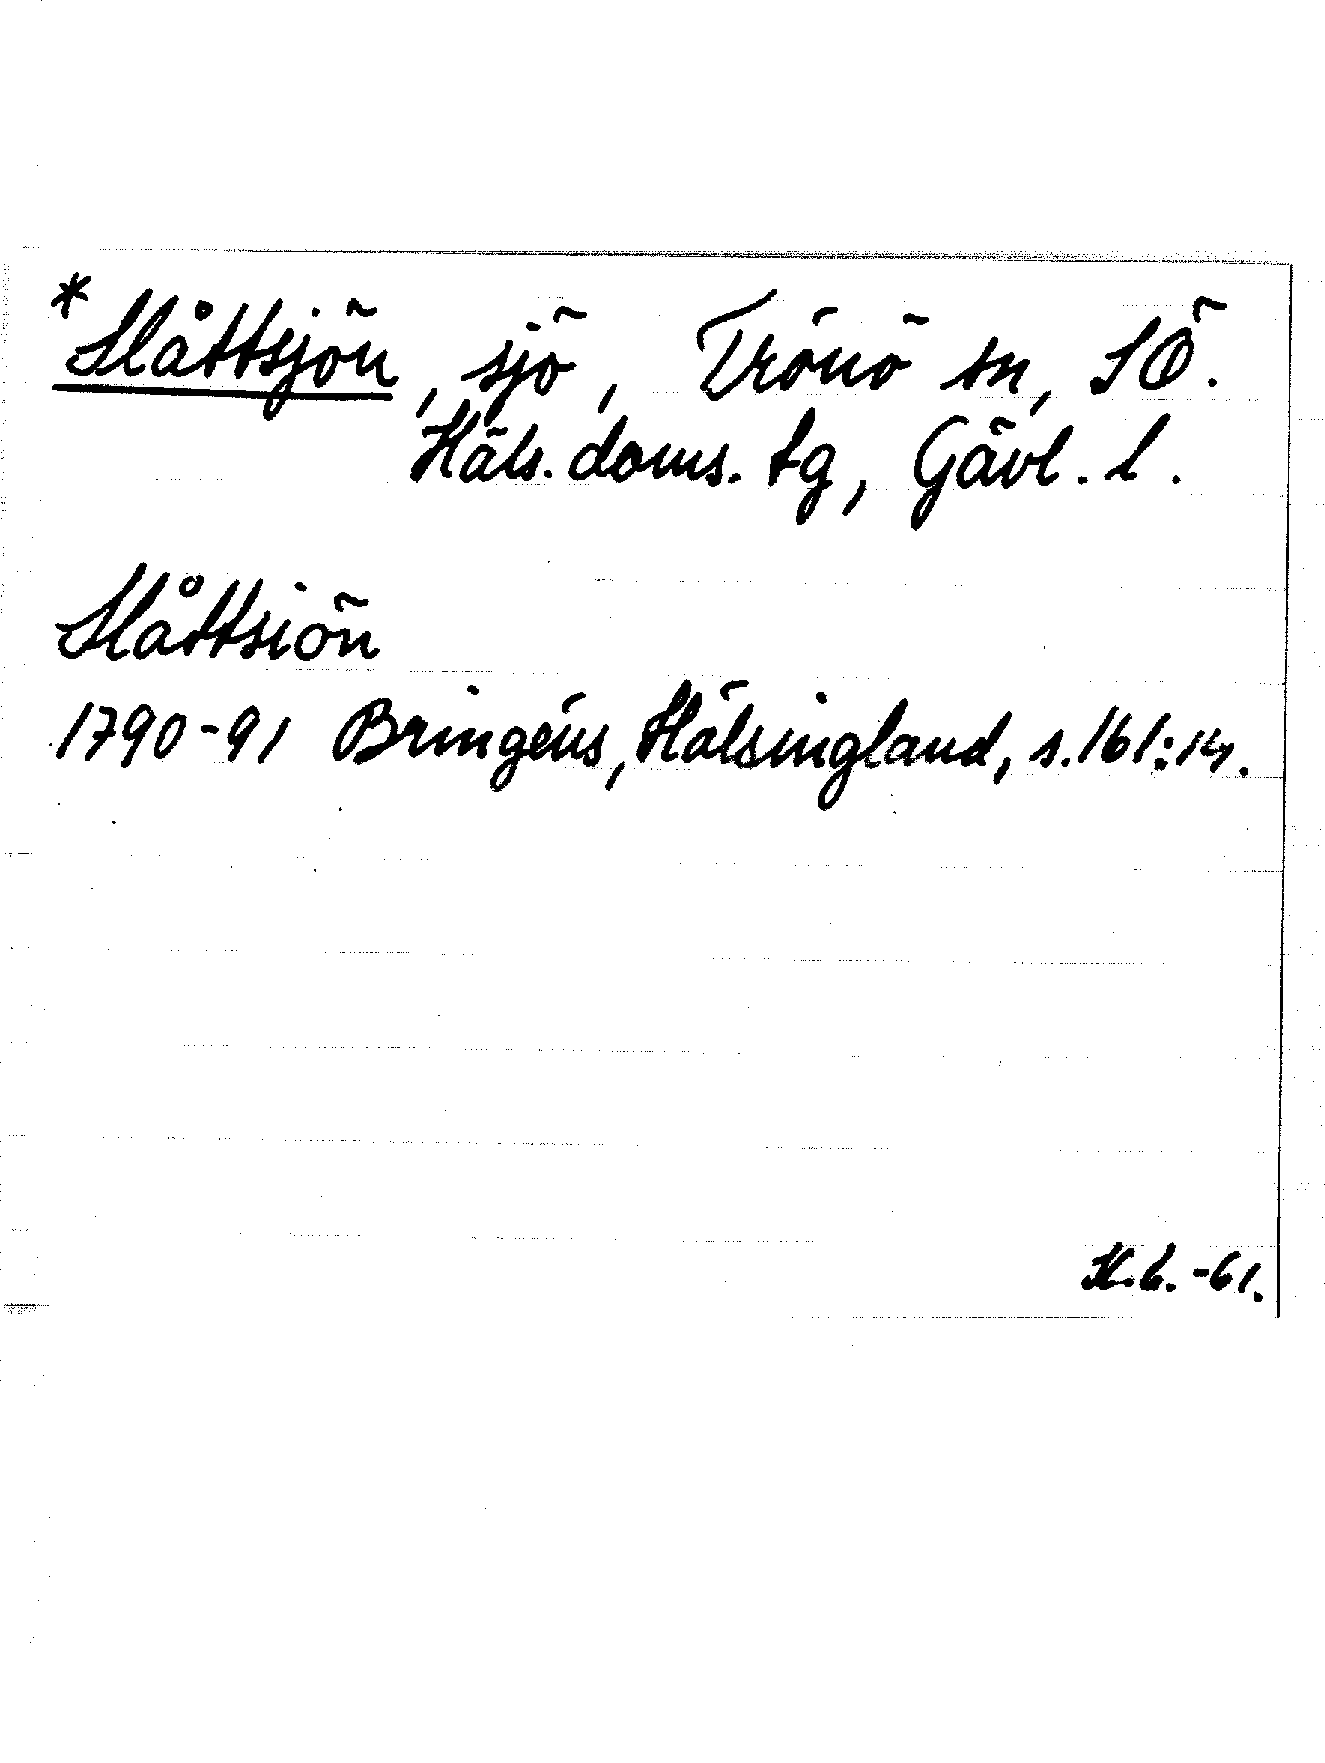 *Slåttsjön, sjö, Trönö sn, SÖ.
Häls. doms. tg, Gävl. l.
Slåttsiön
1790-91 Bringéus, Hälsingland, s. 161:14.
K.G. -61.